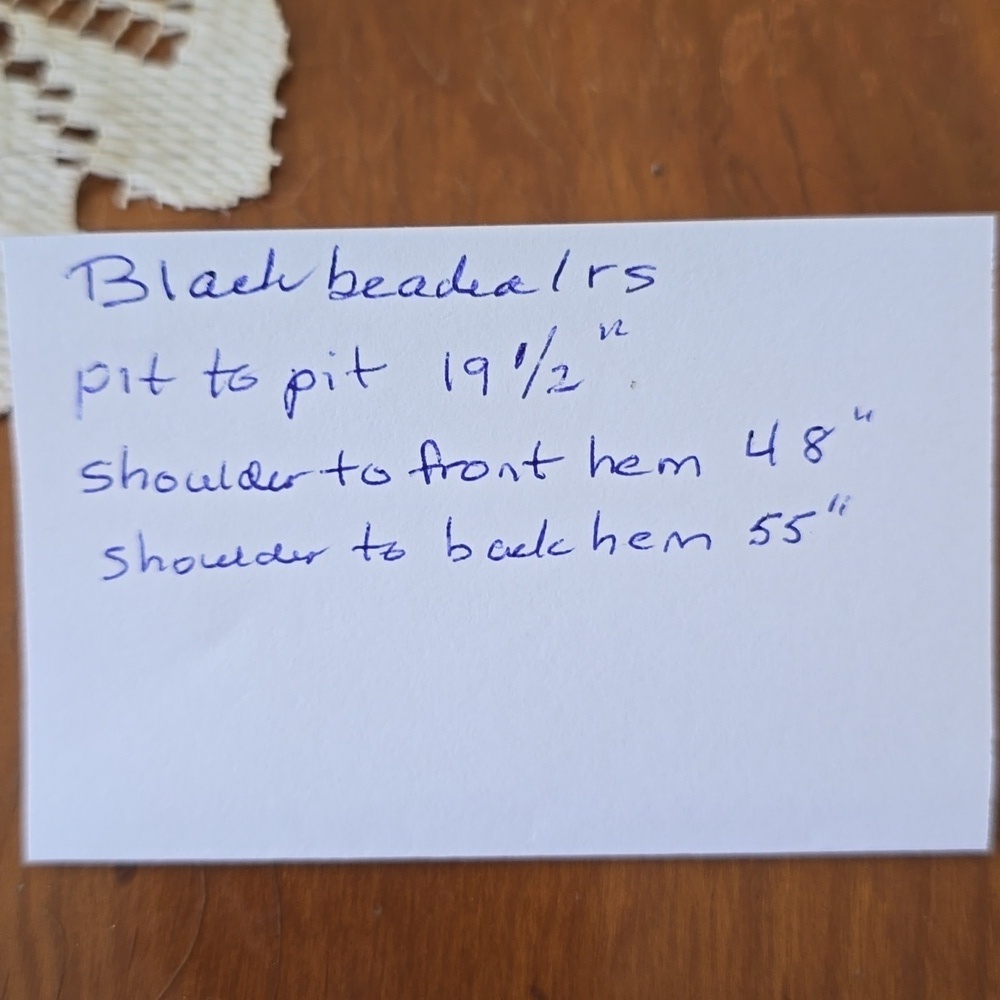 Black beaded/rs
pit to pit 19 1/2"
shoulder to front hem 48"
shoulder to back hem 55"